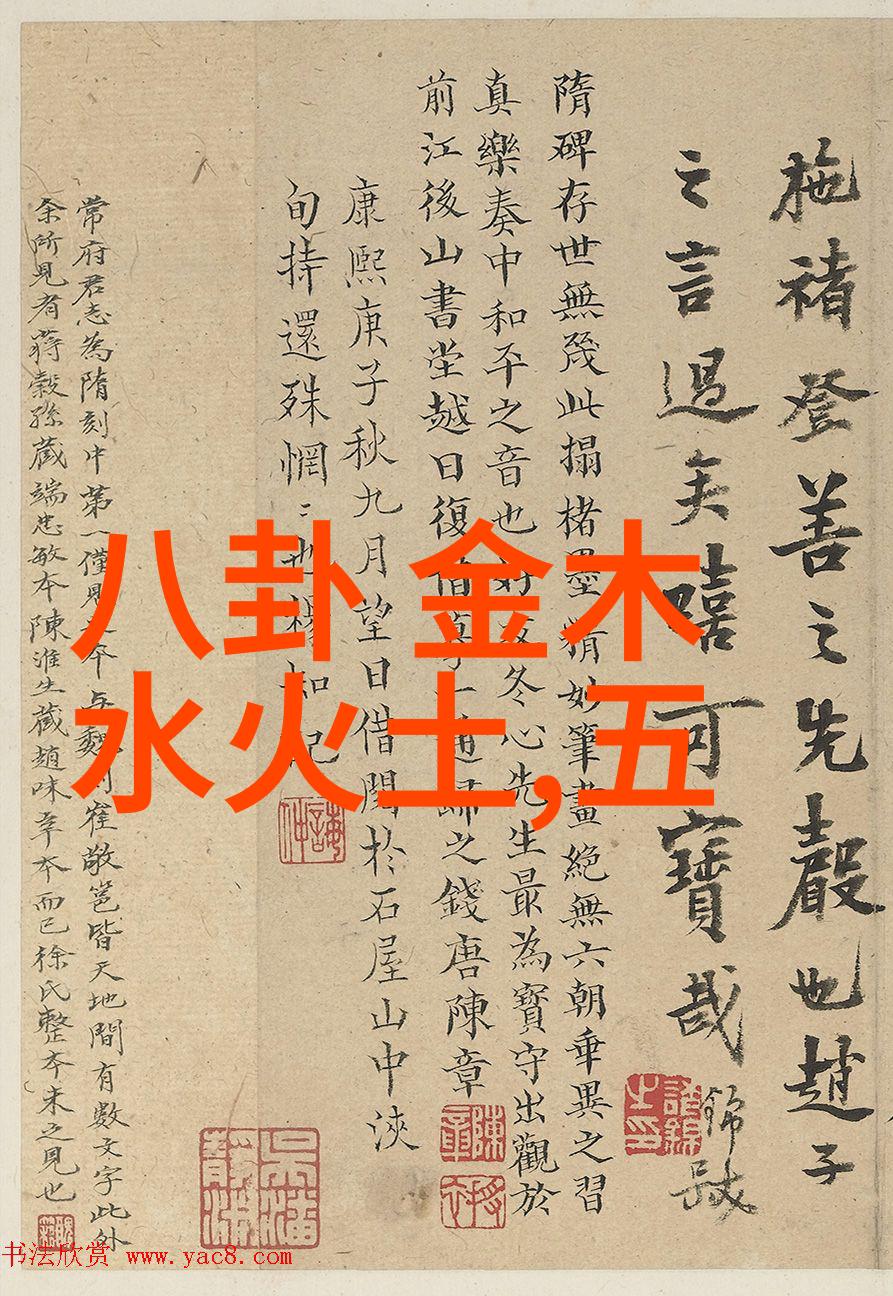 施褚登善之先聲也趙子
之言過矣嘻可寶哉
錦
隋碑存世無幾此搨楮墨精妙筆畫絕無六朝乖異之習
真樂奏中和平之音也 冬心先生最為寶守出觀於
前江後山書堂越日復 歸之錢唐陳章
康熙庚子秋九月望日借閱於石屋山中浹
旬持還殊惘〻也 記
常府君志為隋刻中第一僅見 崔敬邕皆天地間有數文字此外
余所見有蔣穀孫藏端忠敏本陳淮生藏趙味辛本而已徐氏整本未之見也
陳章
八卦 金木
水火土,五
书法欣赏 www.yac8.com